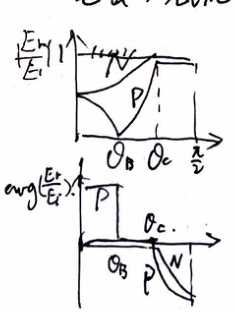 |Er/Ei| 1
N
P
θB θc π/2
arg(Er/Ei)
P
θc
θB P N